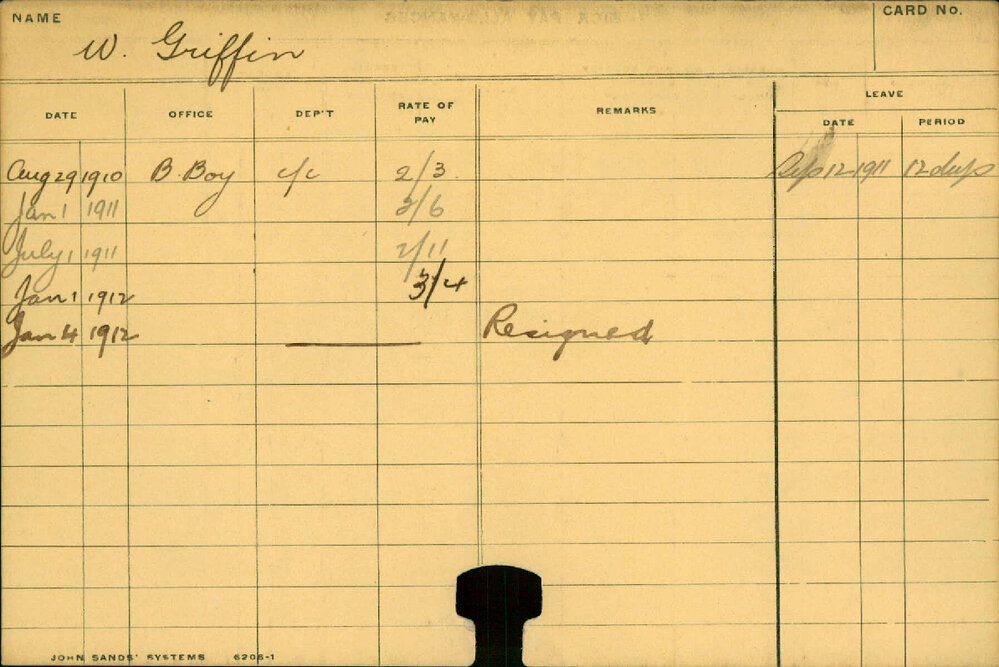 NAME
W. Griffin
CARD No.
DATE OFFICE DEP'T RATE OF PAY REMARKS LEAVE
DATE PERIOD
Aug 29 1910 B. Boy c/c 2/3 Sep 12 1911 12 days
Jan 1 1911 2/6
July 1 1911 2/11
Jan 1 1912 3/4
Jan 4 1912 Resigned
JOHN SANDS' SYSTEMS 6206-1